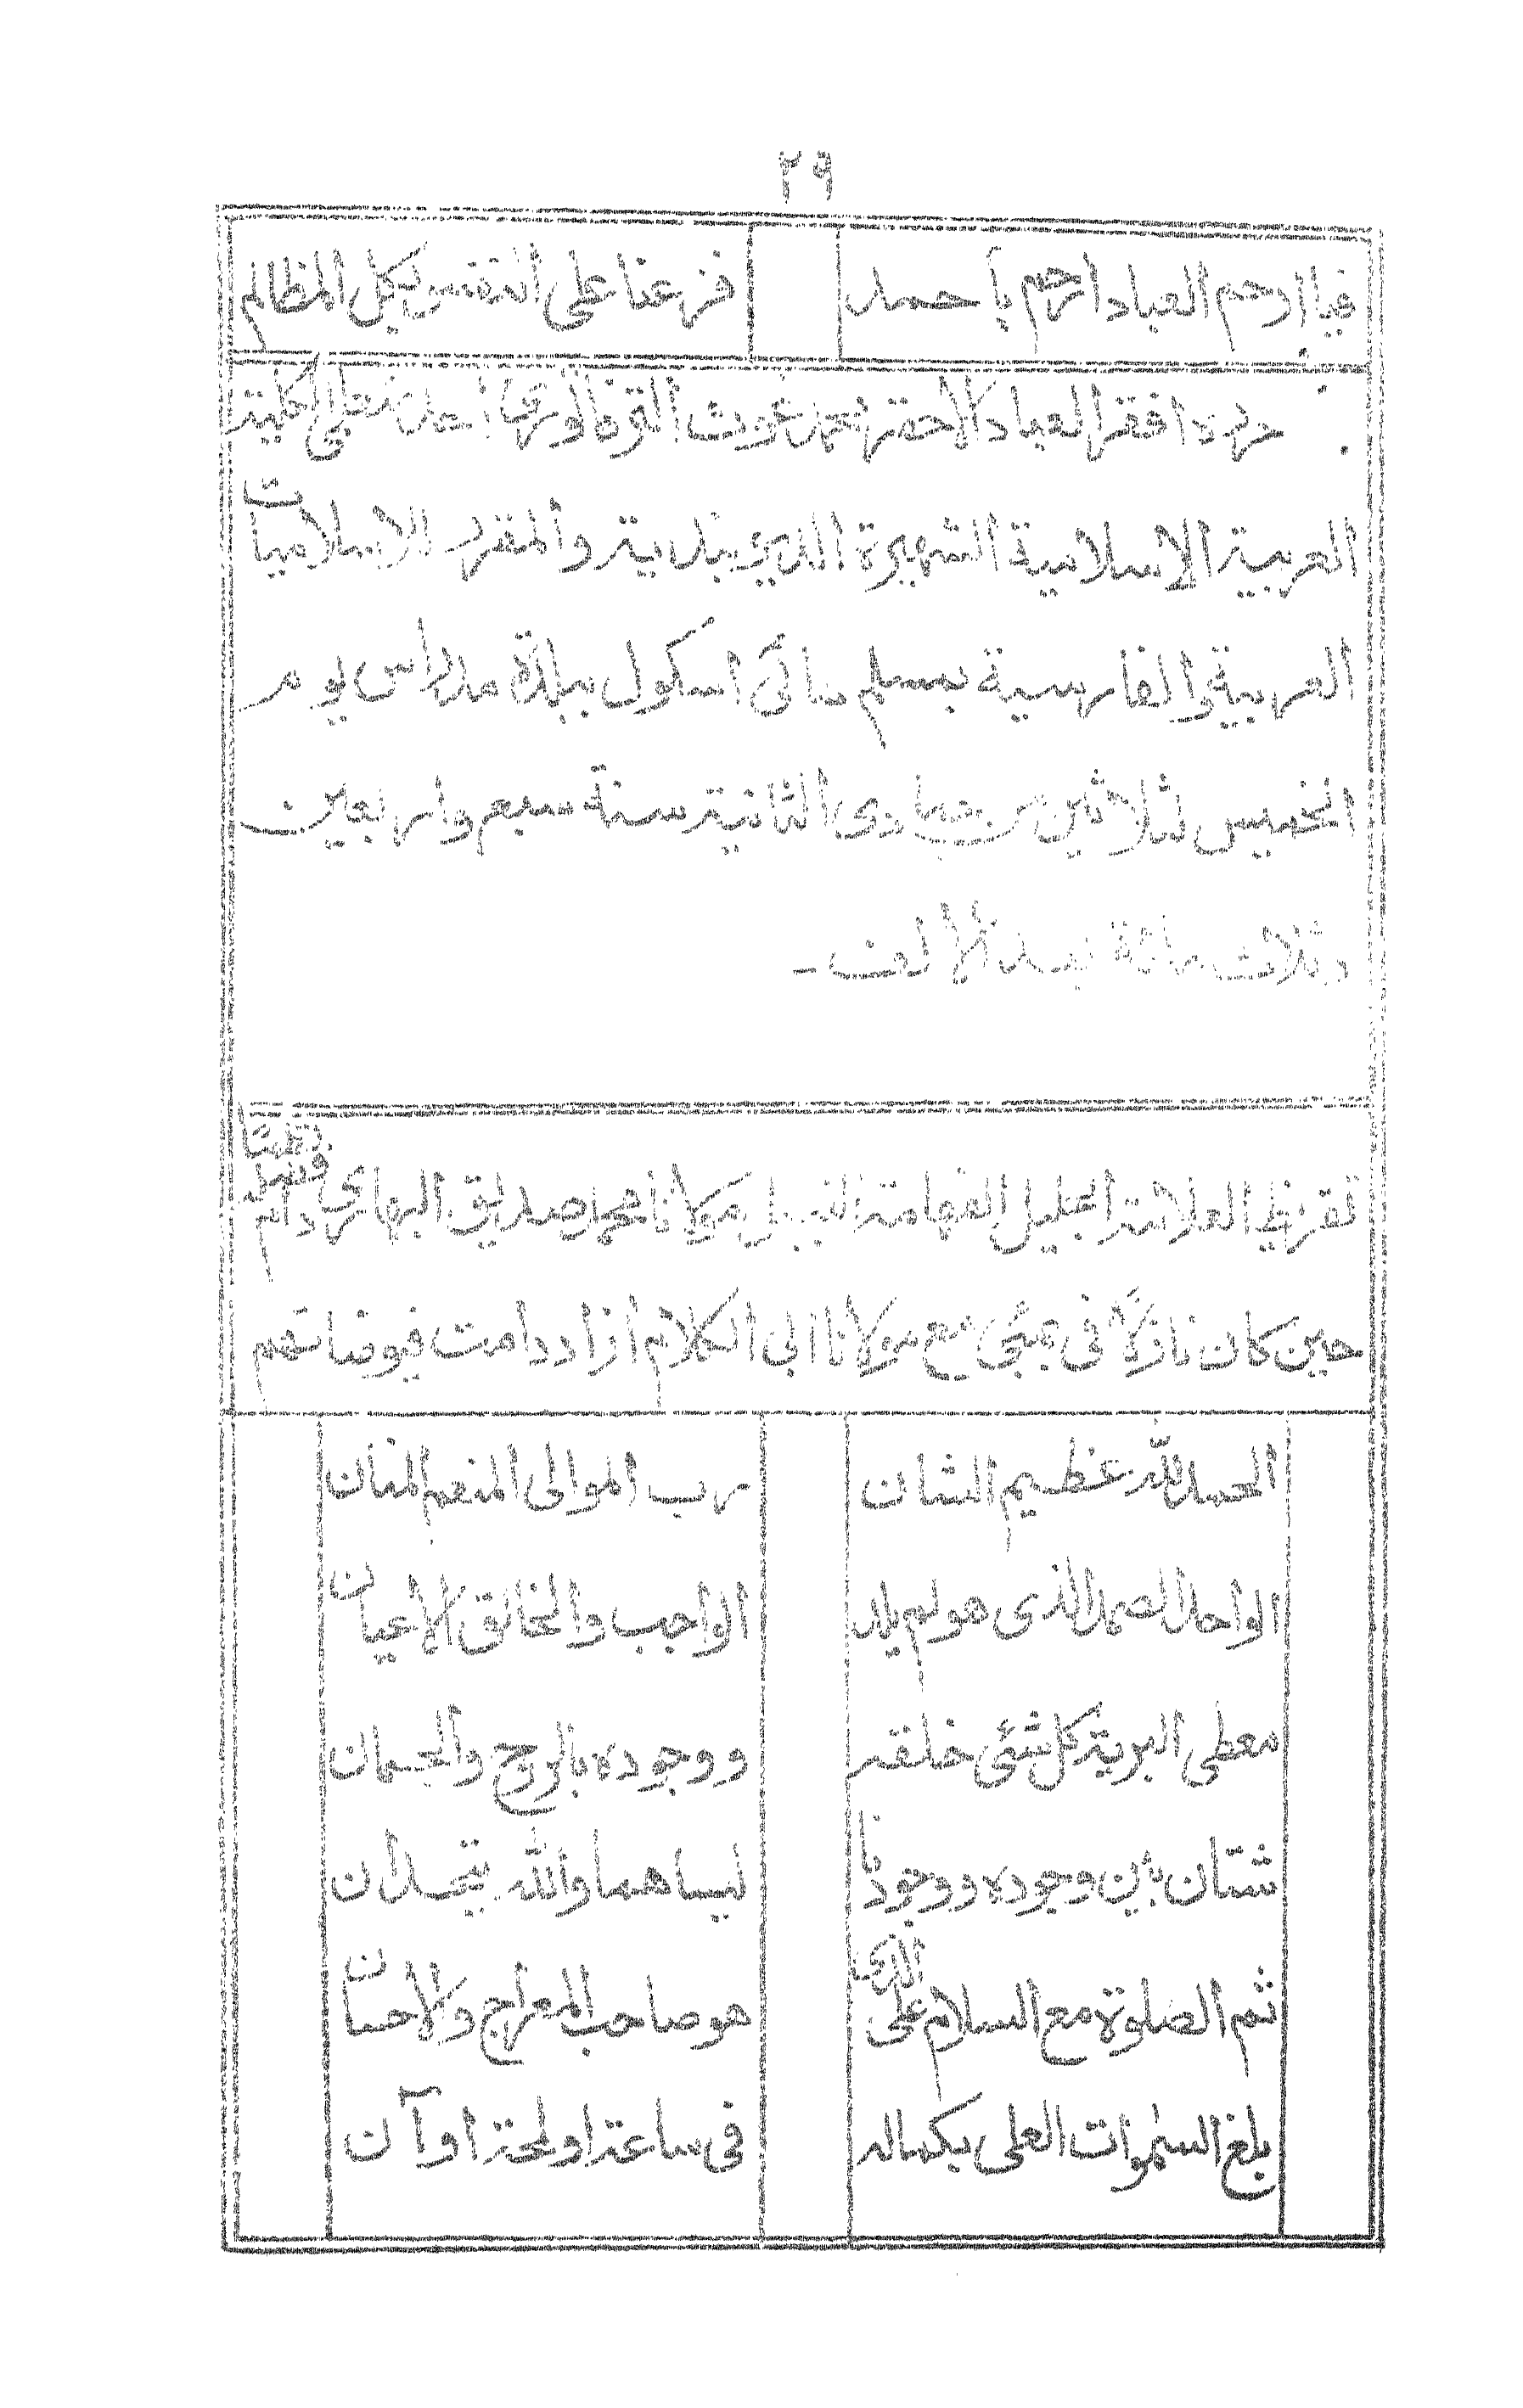 ٢٩
فيا ارحم العباد ارحم بأحمد فرعنا على النفوس كل المظالم
حرره افقر العباد الأحقر محمد غوث
العربية الإسلامية الشهيرة والمقرر للاسلاميات
العربية والفارسية بمسلم هائى اسكول ببلدة مدراس يوم
الخميس لثلاثين من جمادى الثانية سنة سبع واربعين
وثلاث مائة بعد الألف -
تقريظ العلامة الجليل الفهامة النبيل مولانا محمد صديق البهارى دام فضله نظمًا
حين كان نازلاً فى بمبئى مع مولانا ابى الكلام ازاد دامت فيوضاتهم
الحمد لله عظيم الشان رب الموالى المنعم المنان
الواحد الصمد الذى هو لم يلد الواجب والخالق الأعيان
معطى البرية كل شئى خلقه ووجوده بالروح والجسمان
شتان بين وجوده ووجودنا ليسا هما والله يتحدان
ثم الصلوة مع السلام على الذى هو صاحب المعراج والاحسان
بلغ السموات العلى بكماله فى ساعة او لمحة او آن